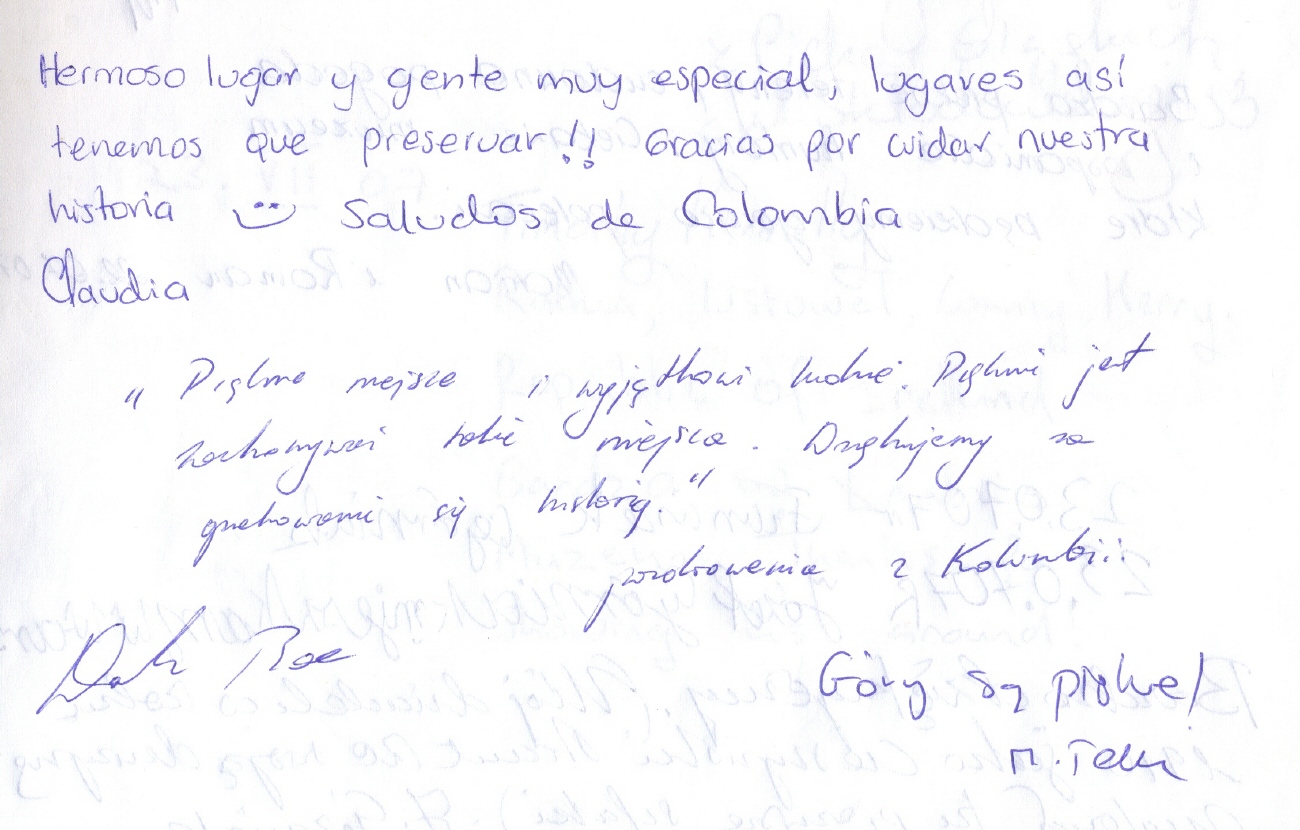 Hermoso lugar y gente muy especial, lugares así
tenemos que preservar!! Gracias por cuidar nuestra
historia Saludos de Colombia
Claudia
" Piękne miejsce i wyjątkowi ludzie. Pięknie jest
zachowywać takie miejsca. Dziękujemy za
się historią."
pozdrowienia z Kolumbii
Góry są piękne!